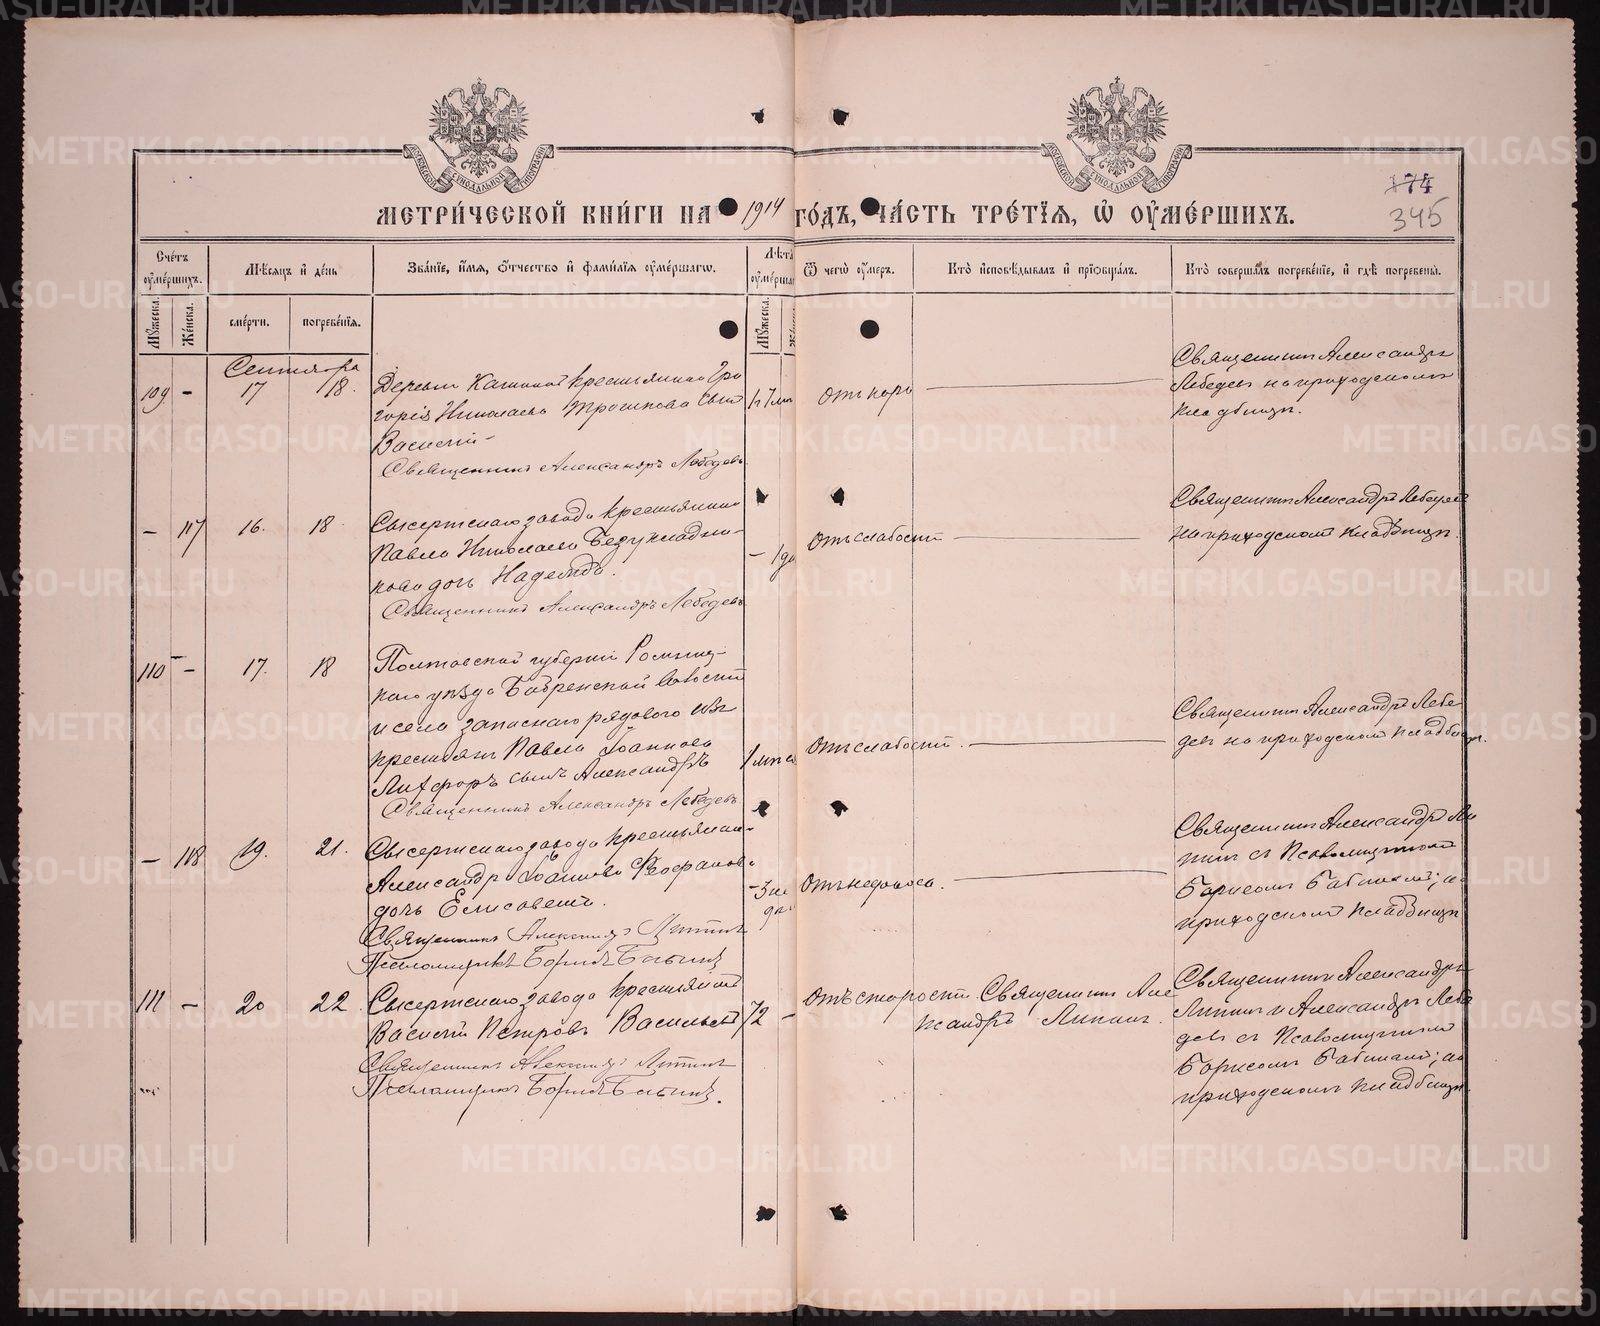 МЕТРИ́ЧЕСКОЙ КНИ́ГИ НА 1914 ГО́ДЪ, ЧА́СТЬ ТРЕ́ТЇѦ, Ѿ ОУМЕ́РШИХЪ.
174
345
Сче́тъ оуме́ршихъ.
Мѣсѧцъ и де́нь
Зва́нїе, и́мѧ, о́тчество и фами́лїѧ оуме́ршагѡ.
Лѣт
оуме́рша
Ѿ чегѡ̀ оу́меръ.
Кто̀ и́сповѣ́дывалъ и прїѡбща́лъ.
Кто̀ соверша́лъ погребе́нїе, и гдѣ̀ погребены̀.
Мꙋ́жеска.
Же́нска.
сме́рти.
погребе́нїѧ.
Мꙋ́жеска.
Сентября
109 - 17 18.
Деревни Кашиной крестьянина Гри
горія Николаева Трошкова сынъ
Василій
Священникъ Александръ Лебедевъ
отъ кори
Священникъ Александръ
Лебедевъ на приходскомъ
кладбищѣ.
- 117 16. 18
Сысертскаго завода крестьянина
Павла Николаева Бездукладни-
кова дочь Надежда.
Священникъ Александръ Лебедевъ
отъ слабости
Священникъ Александръ Лебедев
на приходскомъ кладбищѣ.
110 - 17. 18
Полтавской губерніи Роменс-
каго уѣзда Бобренской волости
и села запаснаго рядового изъ
крестьянъ Павла Іоаннова
сынъ Александръ
Священникъ Александръ Лебедевъ
отъ слабости.
Священникъ Александръ Лебе
девъ на приходскомъ кладбищѣ.
- 118 19. 21.
Сысертскаго завода крестьянина
Александра Іоаннова Феофанова
дочь Елисаветъ.
Священникъ Александръ Липинъ
Псаломщикъ Борисъ Бабинъ
- 3 не
де
Священникъ Александръ Ли
пинъ съ Псаломщикомъ
Борисомъ Бабинымъ; на
приходскомъ кладбищѣ
111 - 20 22.
Сысертскаго завода крестьянинъ
Василій Петровъ Васильевъ
Священникъ Александръ Липинъ
Псаломщикъ Борисъ Бабинъ.
72 -
отъ старости
Священникъ Але
ксандръ Липинъ.
Священники Александръ
Липинъ и Александръ Лебе
девъ съ Псаломщикомъ
Борисомъ Бабинымъ; на
приходскомъ кладбищѣ.
METRIKI.GASO-URAL.RU